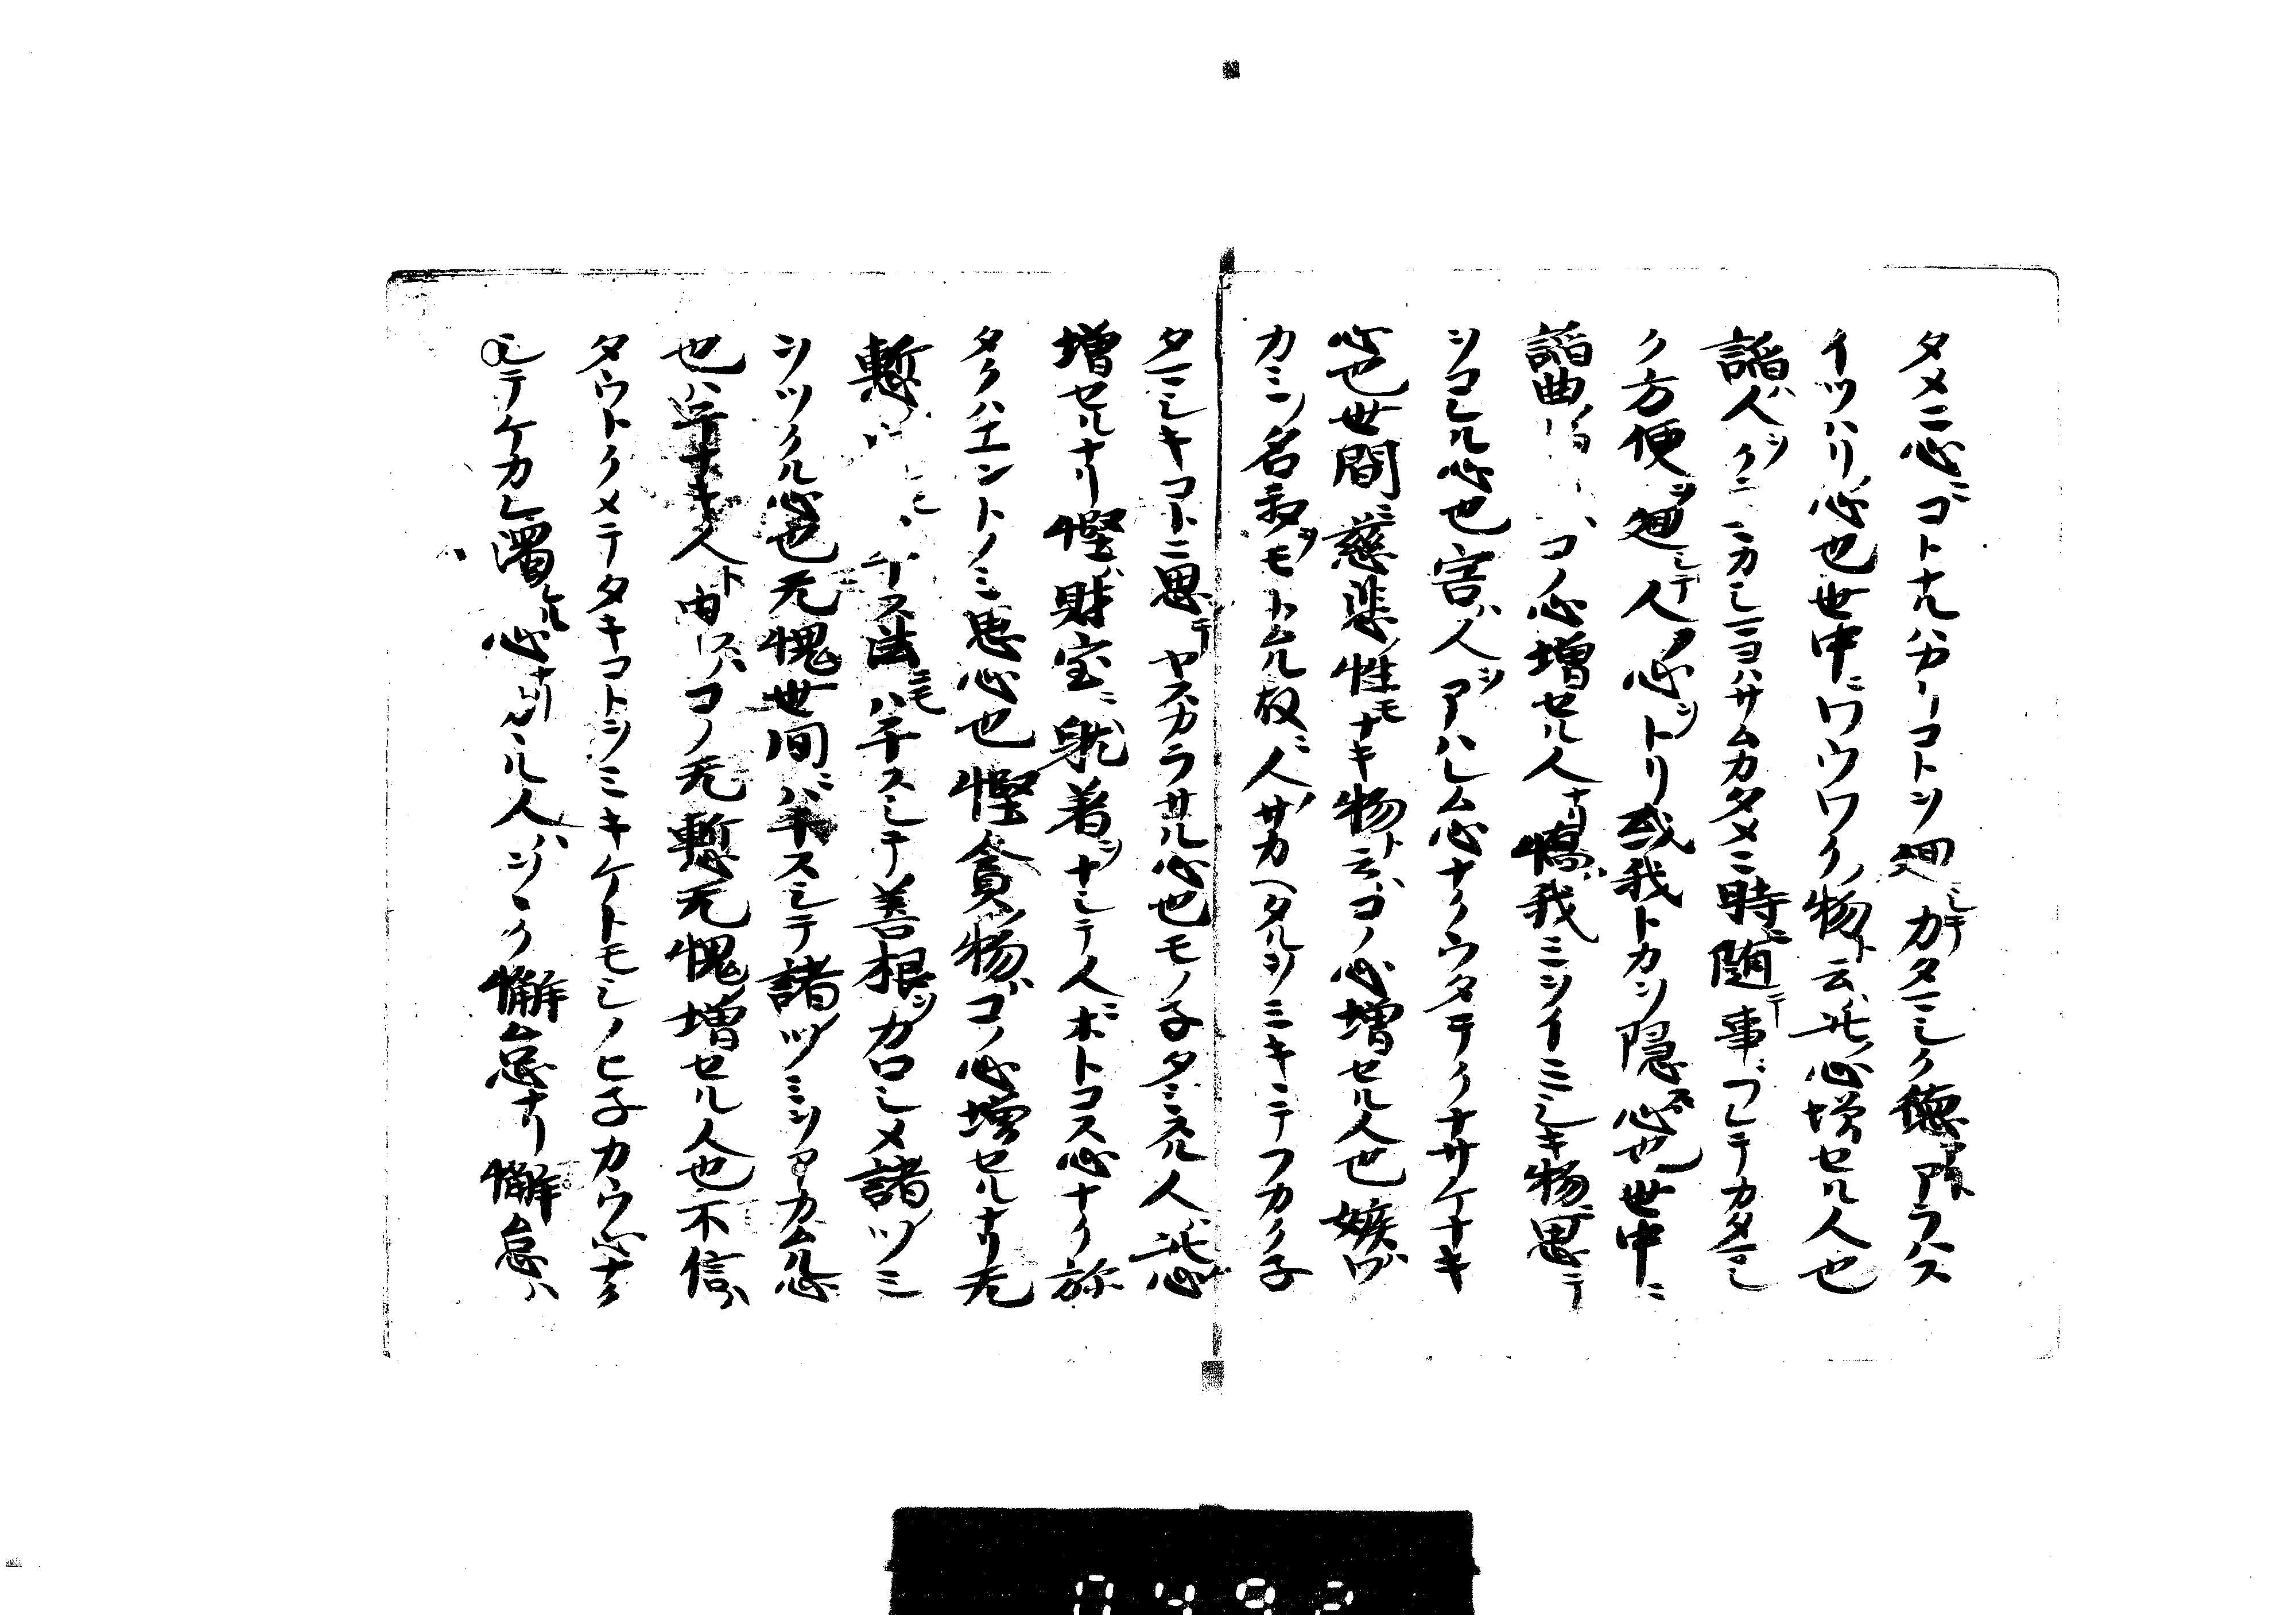 タメニ心ニコトナルハカリコトヲ廻シテカタマシク徳アリトアラハス
イツハリノ心也世中ニワウワクノ物ト云ハ此ノ心増セル人也
諂ハ人ヲクラマカシマヨハサムカタメニ時ニ随テ事ニフレテカタマシ
ク方便ヲ廻シテ人ノ心ヲトリ或我トカヲ隠ス心也世中ニ
諂曲ノ コノ心増セル人ナリ憍ハ我ミヲイミシキ物ニ思テ
ヲコレル心也害ハ人ヲアハレム心ナクウタテクナサケナキ
心也世間ニ慈悲ノ性モナキ物ト云ハコノ心増セル人也嫉ハワ
カミノ名利ヲモトムル故ニ人ノサカヘタルヲミキヽテフカクネ
タマシキコトニ思テヤスカラサル心也モノネタミスル人ハ此ノ心
増セルナリ慳ハ財宝ニ躭著ヲナシテ人ニホトコス心ナク弥
タクハエントノミ思心也慳貪ノ物ハコノ心増セルナリ无
慙ハ 法ニモハチスシテ善根ヲカロシメ諸ノツミ
ヲツクル心也无愧ハ世間ニハチスシテ諸ノツミヲアカムル心
也ハチナキ人ト申ハコノ无慙无愧ノ増セル人也不信ハ
タウトクメテタキコトヲミキケトモシノヒネカウ心ナク
シテケカレ濁レル心ナリ 人ハ ク懈怠ナリ懈怠ハ
0492